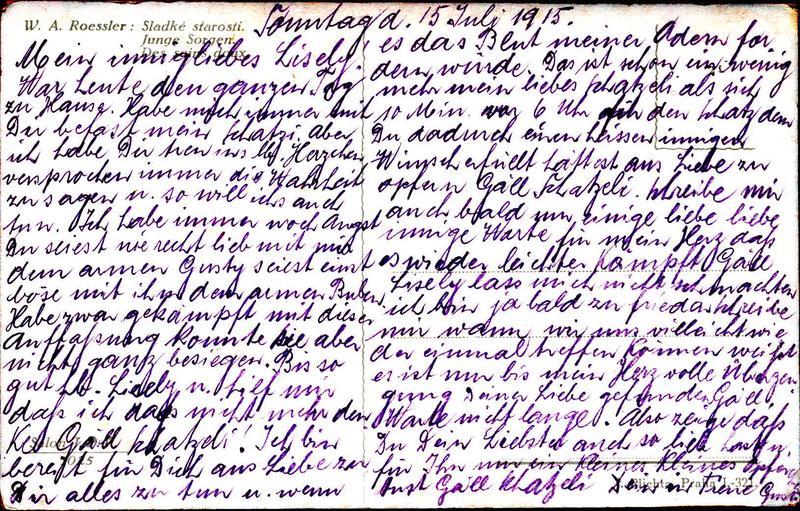 W. A. Roessler : Sladké starosti.
Junge Sorgen.
Des soins doux.
Sonntag d. 15 Juli 1915.
Mein inniggliebes Lisely!
War heute den ganzen Tag
zu Hause. Habe mich immer mit
Du befast mein Schatzi. aber
ich habe Dir ins Herzchen
versprochen immer die Wahrheit
zu sagen u. so will ichs auch
tun. Ich habe immer noch Angst
Du seiest nie recht lieb mit mir
dem armen Gusty seiest einst
böse mit ihm dem armen Buben
Habe zwar gekämpft mit dieser
Auffassung konnte sie aber
nicht ganz besiegen. Bis so
gut Lisely u. hilf mir
daß ich daß nicht mehr denke
Gäll Schatzeli! Ich bin
bereit für Dich aus Liebe zu
Dir alles zu tun u. wenn
es das Blut meiner Adern for
dern würde. Das ist schön ein wenig
mehr mein liebes Schatzeli als ich
so 6 Uhr den Schatz denn
Du dadurch einen heissen innigen
Wunsch erfüllt hättest aus Liebe zu
opfern Gäll Schatzeli. Schreibe mir
auch bald nur einige liebe liebe
innige Worte für mein Herz daß
es wieder leichter kämpft Gäll
Lisely lass mich nicht schmachten
ich bin ja bald zu frieda schreibe
nur wann wir uns vielleicht wie
der einmal treffen können weißt
es ist nur bis mein Herz volle Überzeu
gung Deiner Liebe gefunden Gäll
Warte nicht lange. Also zeige daß
Du Dein Liebster auch so lieb hast u.
für Ihn nur ein kleines kleines
tust Gäll Schatzeli Dein in Treue Gusti
Praha I.-321.